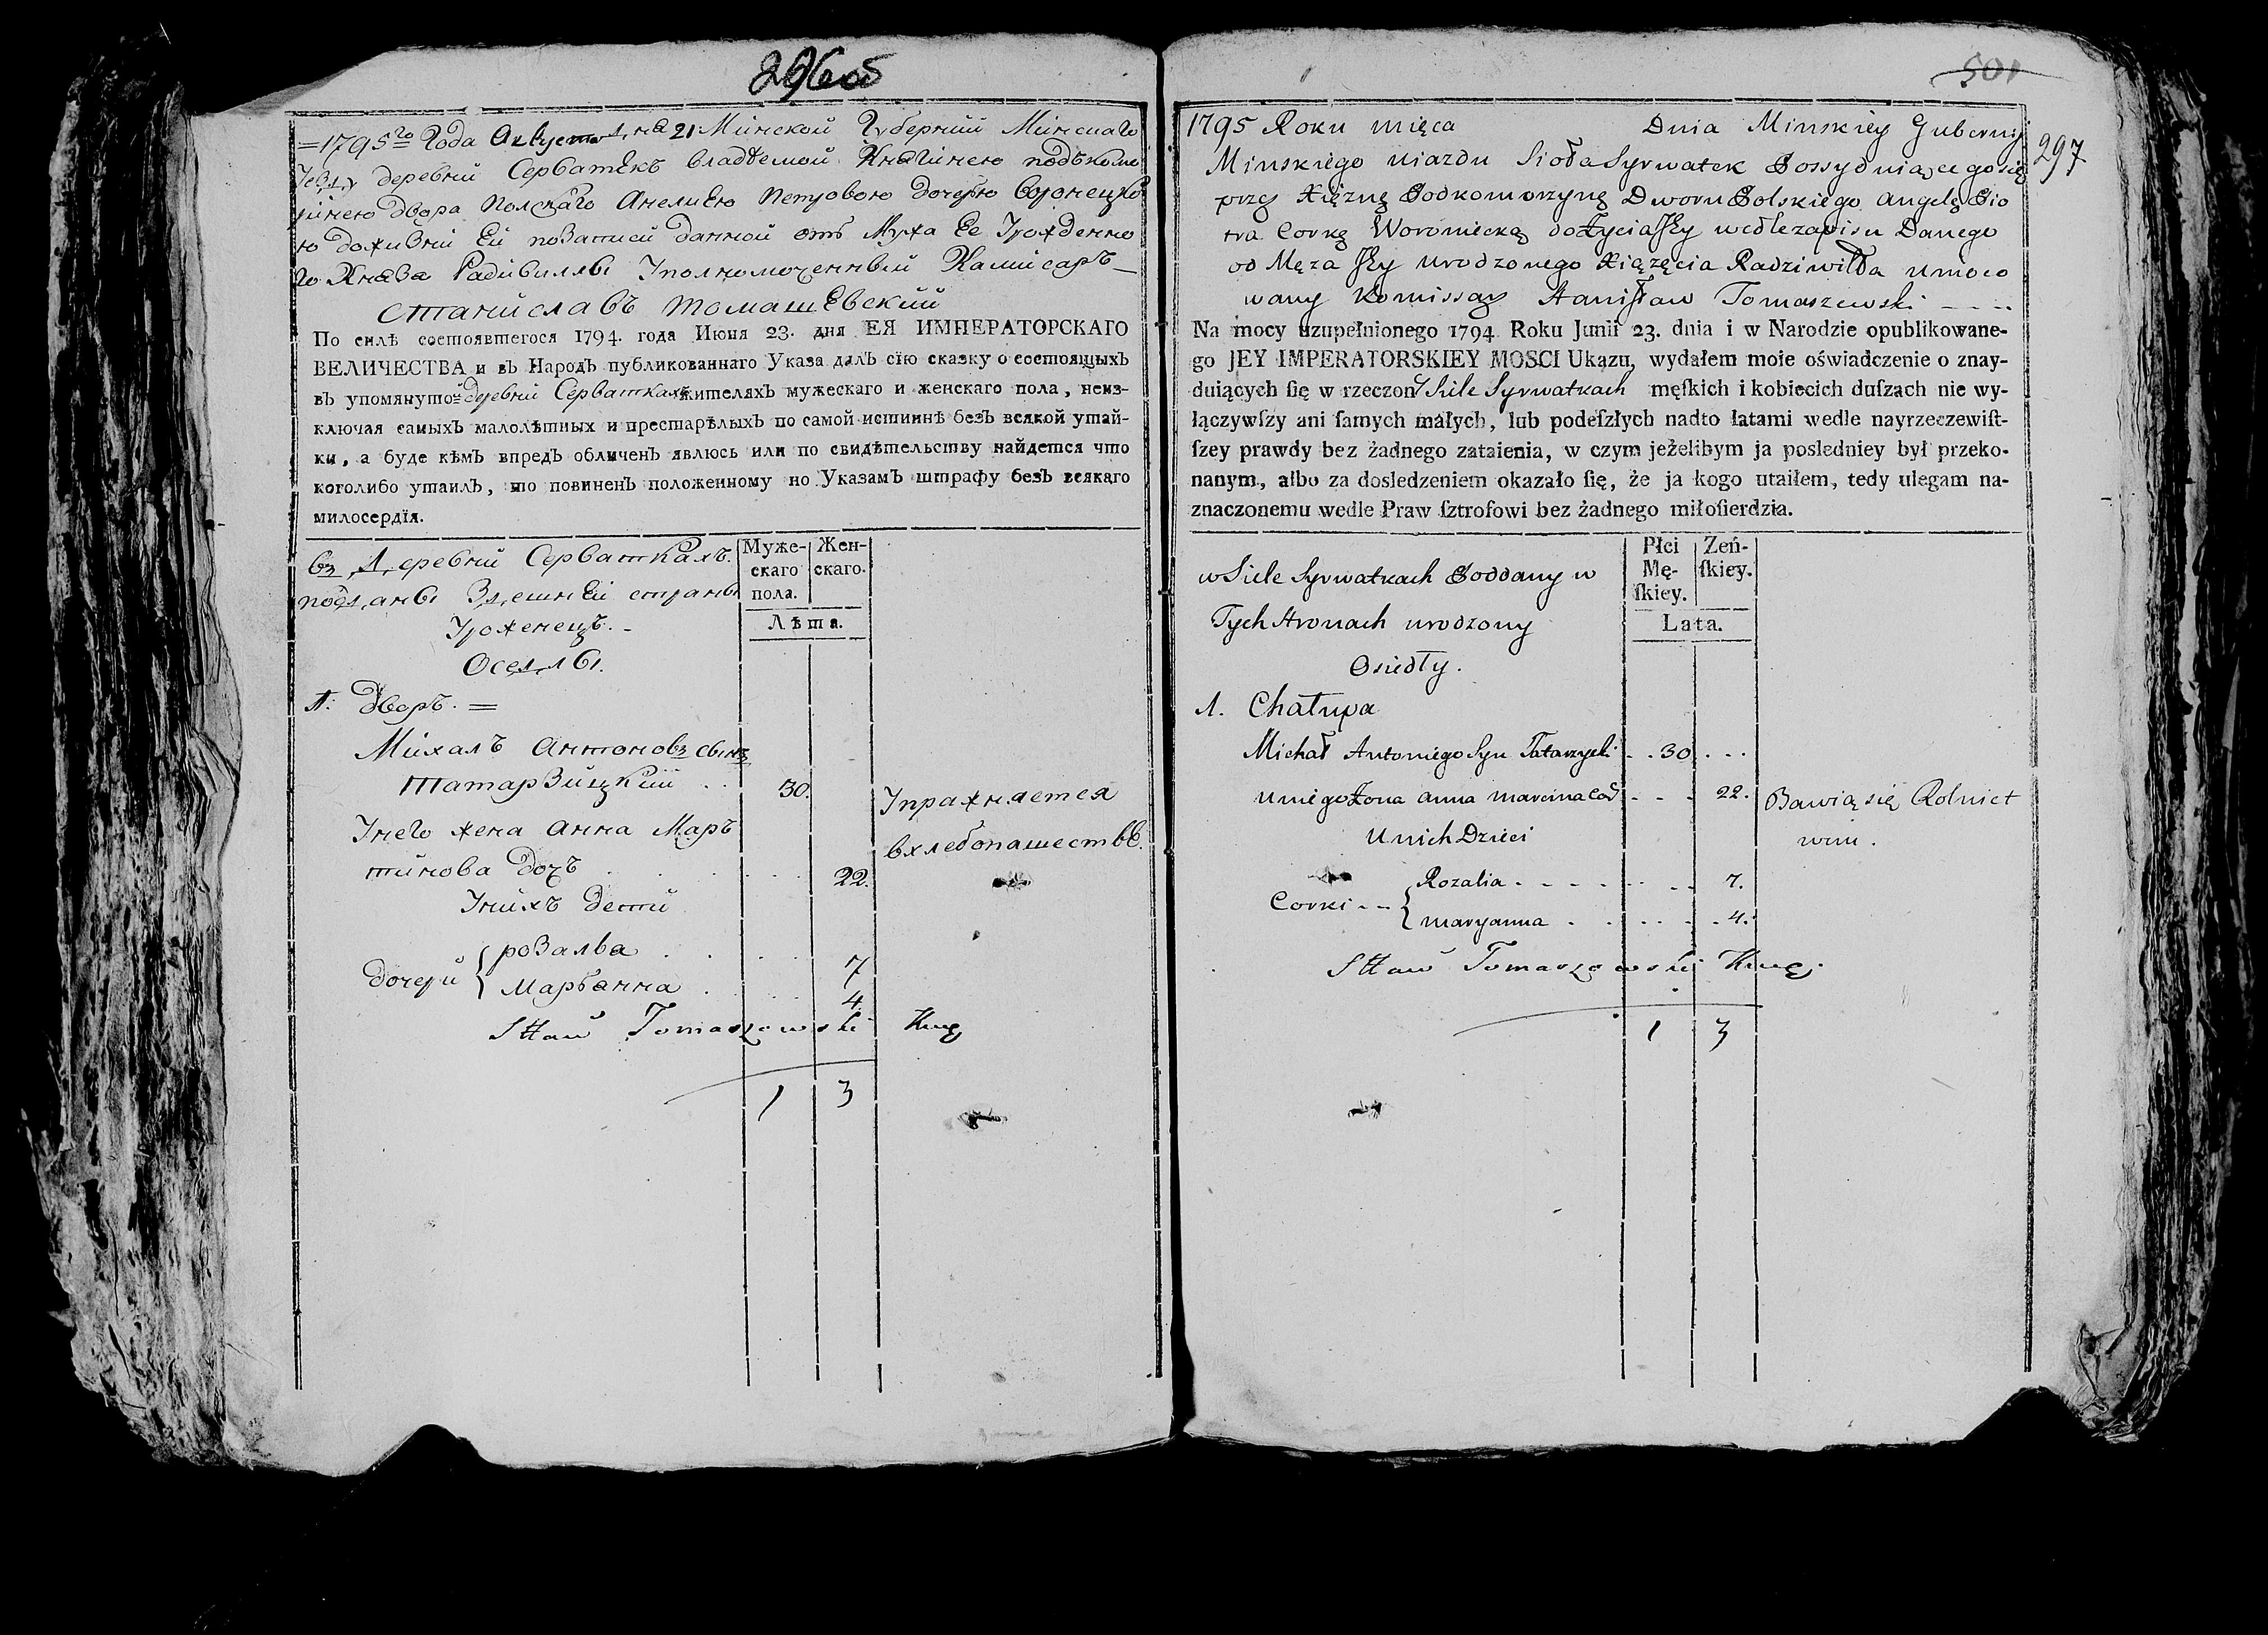 296об
=1795го Года Августа дня 21 Минской Губернии Минскаго
Уезду деревни Серватекъ владѣемой Княгинею подъкомо
ринею двора полскаго Анелиею Петровою дочерью Воронецко
ю доживъ ей по записи данной отъ Мужа Ее Урожденно
го Князя Радивилы Уполномоченный Камисаръ
Станиславъ Томашевский
По силѣ состоявшегося 1794. года Июня 23. дня ЕЯ ИМПЕРАТОРСКАГО
ВЕЛИЧЕСТВА и въ Народъ публикованнаго Указа далъ сїю сказку о состоящыхъ
въ упомянутой деревни Серваткахъ жителяхъ мужескаго и женскаго пола, неиз-
ключая самыхъ малолѣтныхъ и престарѣлыхъ по самой истиннѣ безъ всякой утай-
ки, а буде кѣмъ впредъ обличенъ явлюсь или по свидѣтельству найдется что
коголибо утаилъ, то повиненъ положенному по Указамъ штрафу безъ всякаго
милосердїя.
въ Деревни Серваткахъ
подданы Здешней страны
Уроженецъ.
Оседлы.
Муже-
скаго
пола.
Жен-
скаго.
Лѣта.
1. Дворъ. =
Михалъ Антоновъ сынъ
Татаржицкий . . 30.
Упражняется
в хлебопашестве.
Унего жена Анна Мар
тинова дочъ 22.
Унихъ дети
дочери { розалья 7
Марьянна 4
Sttaw Tomaszewski Kmg
1 3
501
297
1795 Roku mięca Dnia Minskiey Gubernij
Minskiego Ujazdu Sioła Syrwatek Possyduiącego się
przez Xiężnę Podkomorzynę Dworu Polskiego Angelę Pio
tra Corkę Woroniecką dożycia Jey wedle zapisu Danego
od Męza Jey urodzonego Xiążęcia Radziwiłła umoco
wany Komissarz Stanisław Tomaszewski
Na mocy uzupełnionego 1794 Roku Junii 23. dnia i w Narodzie opublikowane-
go JEY IMPERATORSKIEY MOSCI Ukązu, wydałem moie oświadczenie o znay-
duiących ſię w rzeczonỹ Siele Syrwatkach męſkich i kobiecich duſzach nie wy-
łączywſzy ani ſamych małych, lub podeſzłych nadto łatami wedle nayrzeczewiſt-
ſzey prawdy bez żadnego zataienia, w czym jeżelibym ja posledniey był przeko-
nanym, albo za dosledzeniem okazało ſię, że ja kogo utaiłem, tedy ulegam na-
znaczonemu wedle Praw ſztrofowi bez żadnego miłoſierdzia.
w Siele Syrwatkach Poddany w
Tych Stronach urodzony
Osiedły.
Płci
Mę-
ſkiey.
Zeń-
ſkiey.
Lata.
1. Chałupa
Michał Antoniego Syn Tatarzycki . . 30 . . .
u niego Zona Anna Marcina Cor - - - 22.
Bawią się Rolnict
wem.
U nich Dzieci
Corki -- { Rozalia 7.
Maryanna 4.
Sttaw Tomaszewski Kmg
1 3